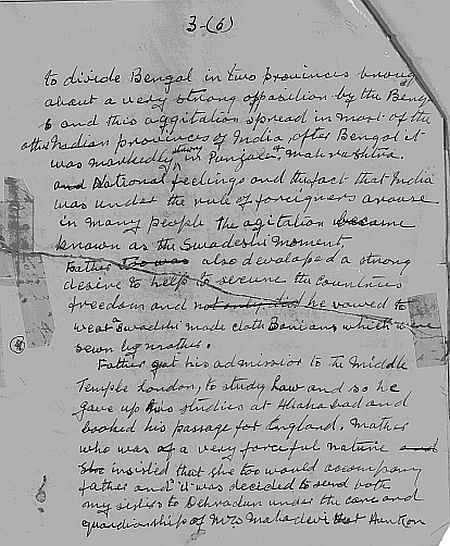 3-(6)
to divide Bengal in two provinces broug
about a very strong opposition by the Beng
& and this aggitation spread in most of the
other Indian provinces of India, after Bengal it
was markedly strong in Punjab & Mahrashtra.
and National feelings and the fact that India
was under the rule of foreigners arouse
in many people the agitation became
known as the Swadeshi Moment,
Father too was also devoloped a strong
desire to help to secure the countries
freedom and not only did he vowed to
wear a swadshi made cloth Banians which were
sewn by mother.
Father got his admission to the Middle
Temple London, to study Law and so he
gave up his studies at Allahabad and
booked his passage for England. Mother
who was of a very forceful nature and
She insisted that she too would accompany
father and it was decided to send both
my sisters to Dehradun under the care and
guardianship of Mrs Mahadevi that